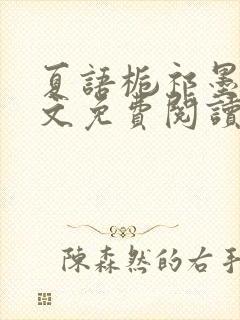 夏語梔祁墨
文免費閱讀
陳森然的右手